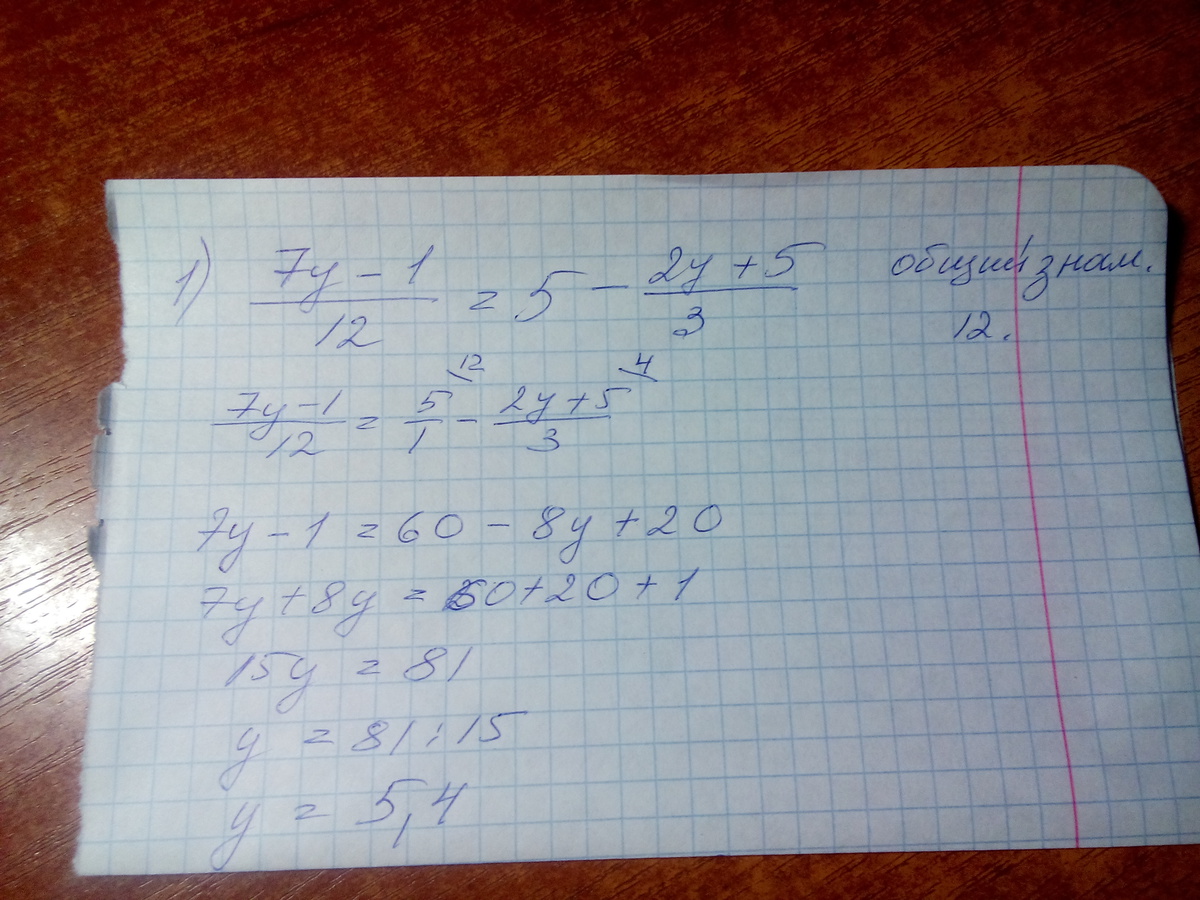 1) (7y - 1)/12 = 5 - (2y + 5)/3 общий знам.
12.
(7y - 1)/12 = 5/1 \12 - (2y + 5)/3 \4
7y - 1 = 60 - 8y + 20
7y + 8y = 60 + 20 + 1
15y = 81
y = 81 : 15
y = 5,4